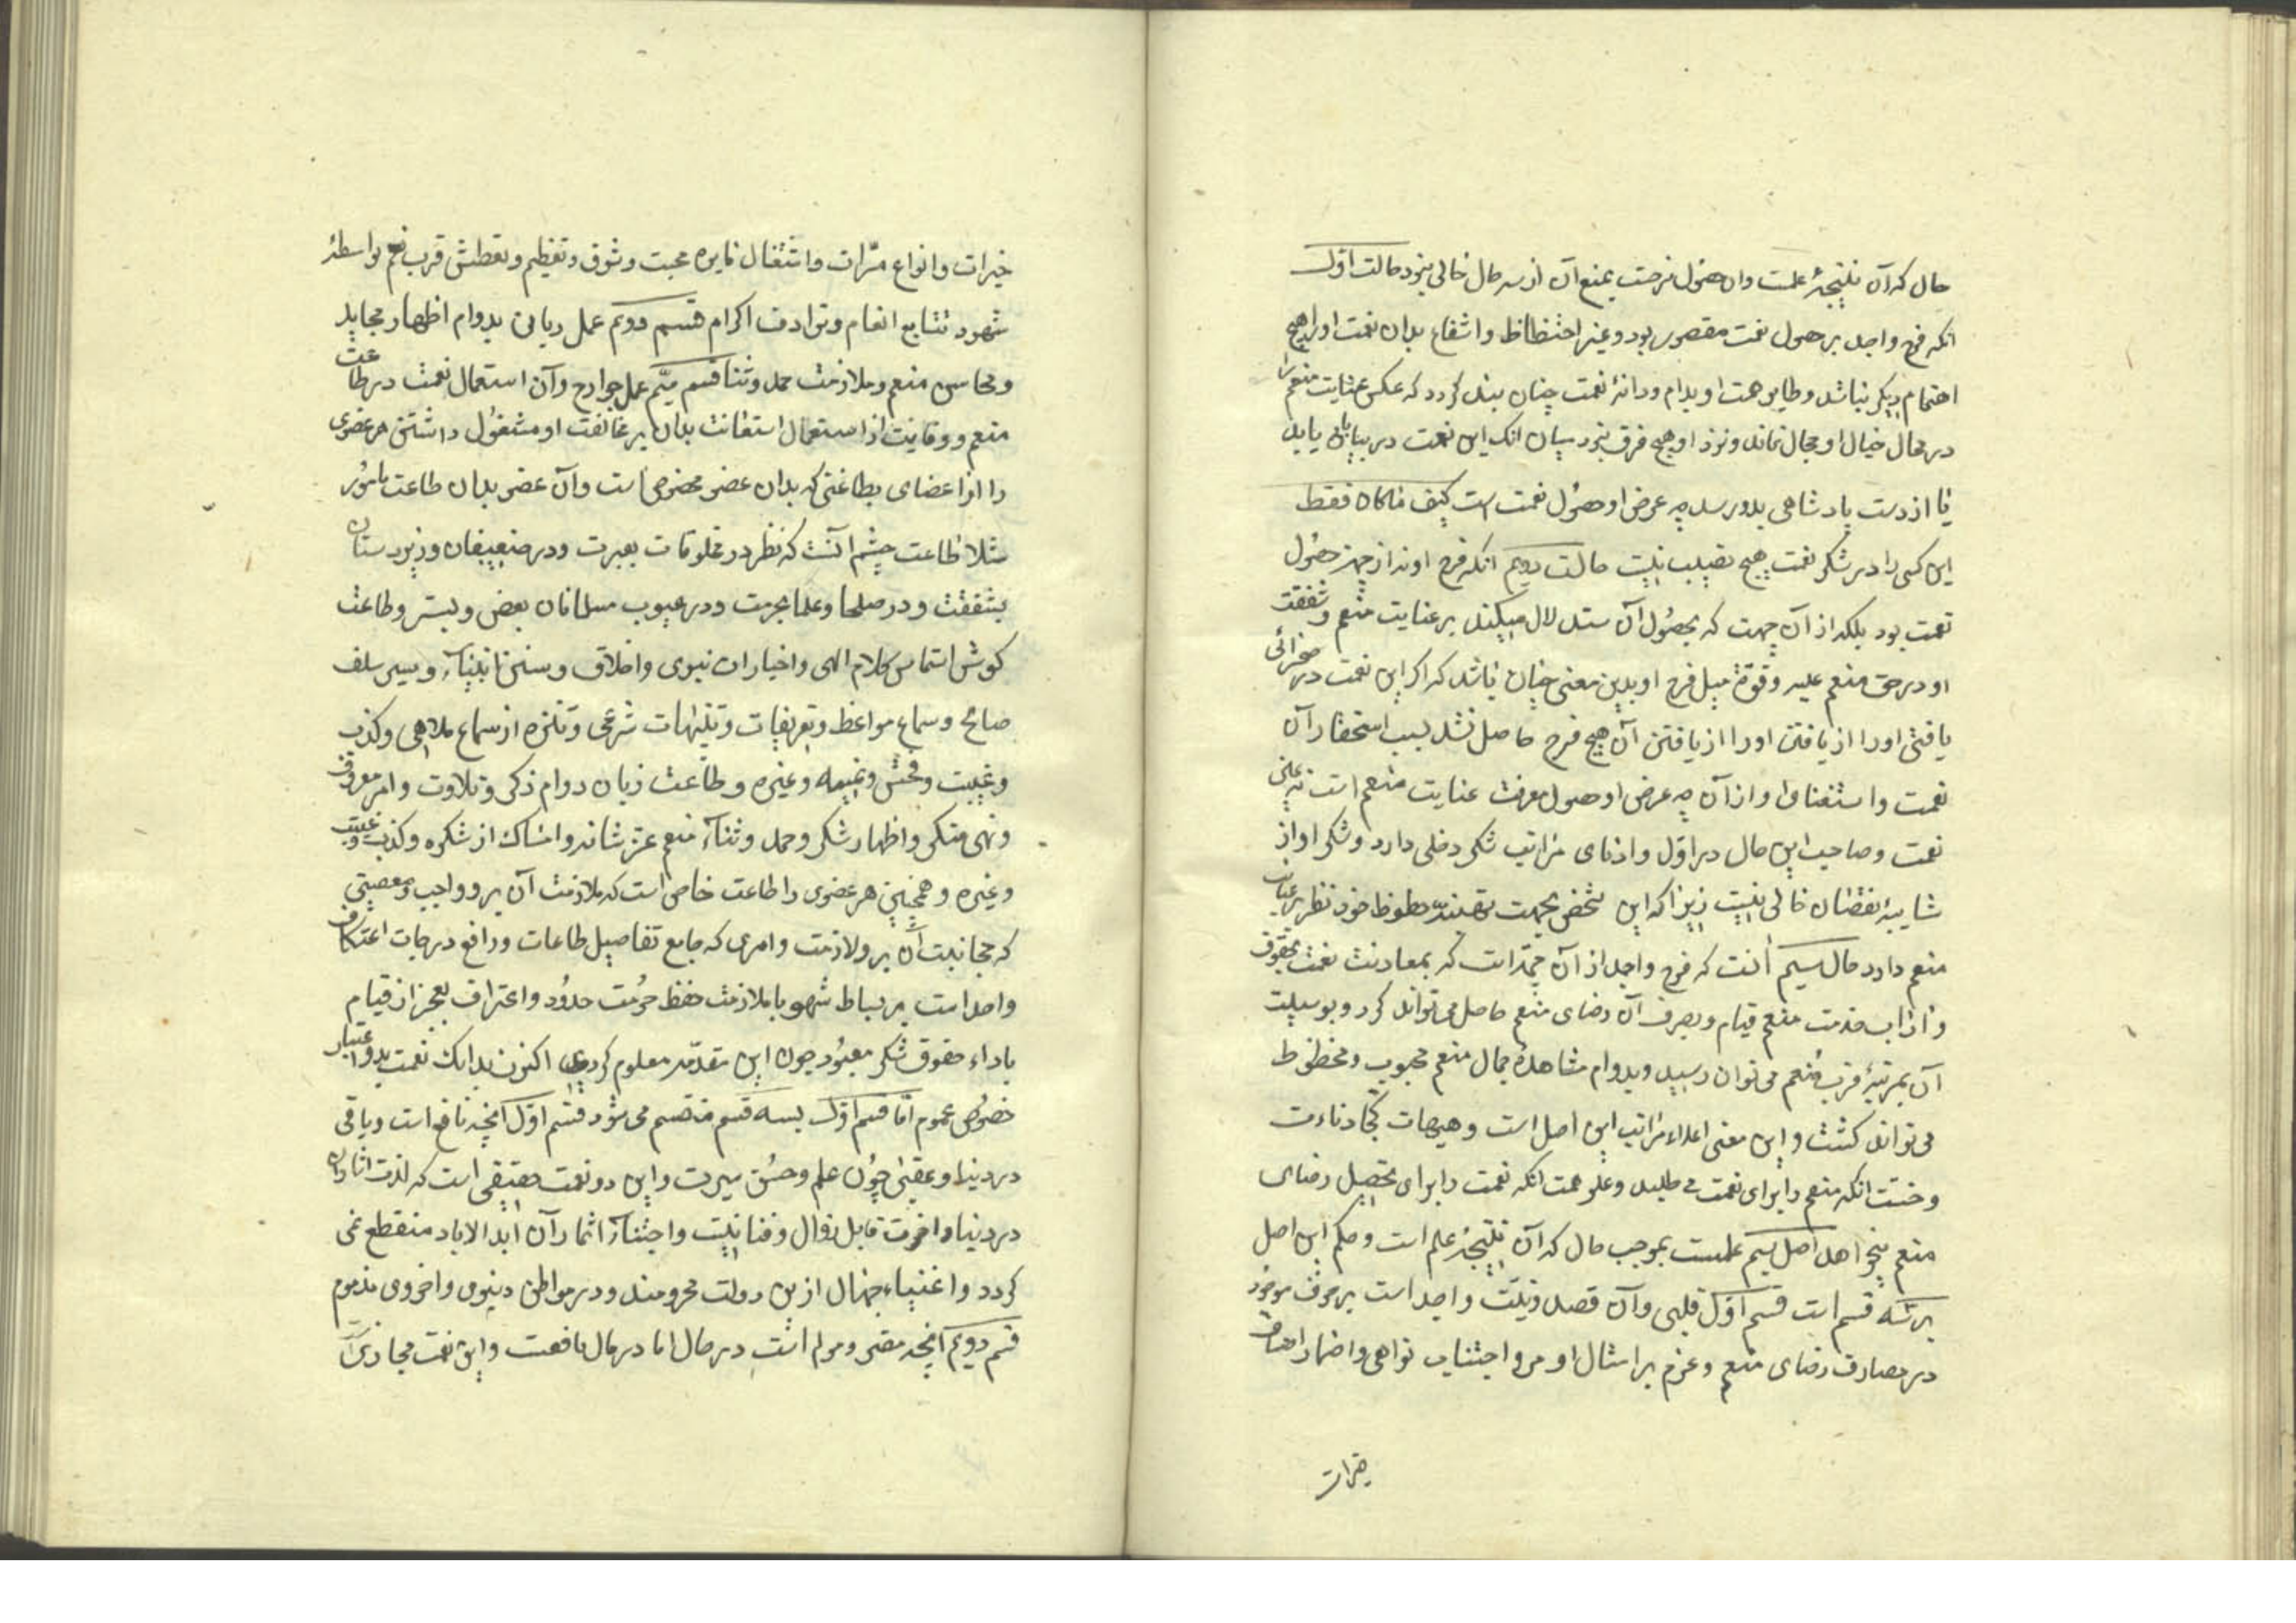 حال که آن نتیجهٔ علمست وان حصول فرحت بمنعم آن از سه حال خالی نبود حالت اول
انکه فرح واجد بر حصول نعمت مقصور بود و غیر احتظاظ و انتفاع بدان نعمت او را هیچ
اهتمام دیکر نباشد و طایر همت او بدام و دانهٔ نعمت چنان بند کردد که عکس عنایت منعم را
در محال خیال او مجال نماند و نزد او هیچ فرق نبود میان انک این نعمت در بیابانی یابد
یا از دست پادشاهی بدو رسد چه عرض او حصول نعمت است کیف ماکان فقط
این کس را در شکر نعمت هیچ نصیب نیست حالت دویم انکه فرح او نه از جهت حصول
نعمت بود بلکه از آن جهت که بحصول آن ستدلال میکند بر عنایت منعم و شفقت
او در حق منعم علیه و قوة میل فرح او بدین معنی چنان باشد که اکر این نعمت در صحرائی
یافتی اورا از یافتن اورا از یافتن آن هیچ فرح حاصل نشد بسبب استحقار آن
نعمت و استغناء او از آن چه عرض او حصول معرفت عنایت منعم است نه عین
نعمت و صاحب این حال در اول و ادنای مراتب شکر دخلی دارد و شکر او از
شایبهٔ نقصان خالی نیست زیرا که این شخص بجهت حظوظ خود نظر بر عنایت
منعم دارد حال سیم آنست که فرح واجد از آن جهتست که بمعاونت نعمت بحقوق
و اداب خدمت منعم قیام و بصرف آن رضای منعم حاصل می تواند کرد و بوسیلت
آن بمرتبهٔ قرب منعم می توان رسید و بدوام مشاهدهٔ جمال منعم محبوب و محظوظ
می تواند کشت و این معنی اعلاء مراتب این اصل است و هیهات کجا دناءت
و خست انکه منعم را برای نعمت می طلبد و علو همت انکه نعمت را برای تحصیل رضای
منعم میخواهد اصل سیم عملست بموجب حال که آن نتیجهٔ علم است و حکم این اصل
بر سه قسم است قسم اول قلبی و آن قصد و نیت واجد است بر صرف موجود
در مصارف رضای منعم و عزم بر امتثال اوامر و اجتناب نواهی و اضمار اصناف
خیرات
خیرات و انواع مبرّات و اشتغال نایره محبت و شوق و تعظیم و تعطش قرب منعم بواسطهٔ
شهود تتابع انعام و ترادف اکرام قسم دویم عمل زبانی بدوام اظهار محامد
و محاسن منعم و ملازمت حمد و ثنا قسم سیّم عمل جوارح و آن استعمال نعمت در طاعت
منعم و وقایت از استعمال استعانت بدان بر مخالفت او مشغول داشتن هر عضوی
را از اعضای بطاعتی که بدان عضو مخصوص است و آن عضو بدان طاعت مامور
مثلا طاعت چشم آنست که نظر در مخلوقات بعبرت و در ضعیفان و زیردستان
بشفقت و در صلحا و علما بحرمت و در عیوب مسلمانان بغض و بستر و طاعت
کوش استماس کلام الهی و اخبار ان نبوی و اخلاق و سنن انبیآء و سیر سلف
صالح و سماع مواعظ و تعریفات و تنبیهات شرعی و تنزه از سماع ملاهی و کذب
و غیبت و فحش و نمیمه و غیره و طاعت زبان دوام ذکر و تلاوت و امر معروف
و نهی منکر و اظهار شکر و حمد و ثنآء منعم عز شانه و امساک از شکوه و کذب و غیبت
و غیره و همچنین هر عضوی را طاعت خاص است که ملازمت آن بر و واجب و معصیتی
که مجانبت آن بر و لازمت و امری که جامع تفاصیل طاعات و رافع درجات اعتکاف
واصداست بر بساط شهو با ملازمت حفظ حرمت حدود و اعتراف بعجز از قیام
باداء حقوق شکر معبود چون این مقدّمه معلوم کردی اکنون بدانک نعمت بدو اعتبار
خصوص عموم امّا قسم اول بسه قسم منقسم می شود قسم اول آنچه نافع است و باقی
در دنیا و عقبی چون علم و حسن سیرت و این دو نعمت حقیقی است که لذت اثار آن
در دنیا و اخرت قابل زوال و فنا نیست و اجتنآء اثمار آن ابد الاباد منقطع نمی
کردد و اغنیاء جهال ازین دولت محرومند و در مواطن دنیوی و اخروی مذموم
قسم دویم آنچه مضر و مولم است در حال اما در مال نافعست و این نعمت مجازیست